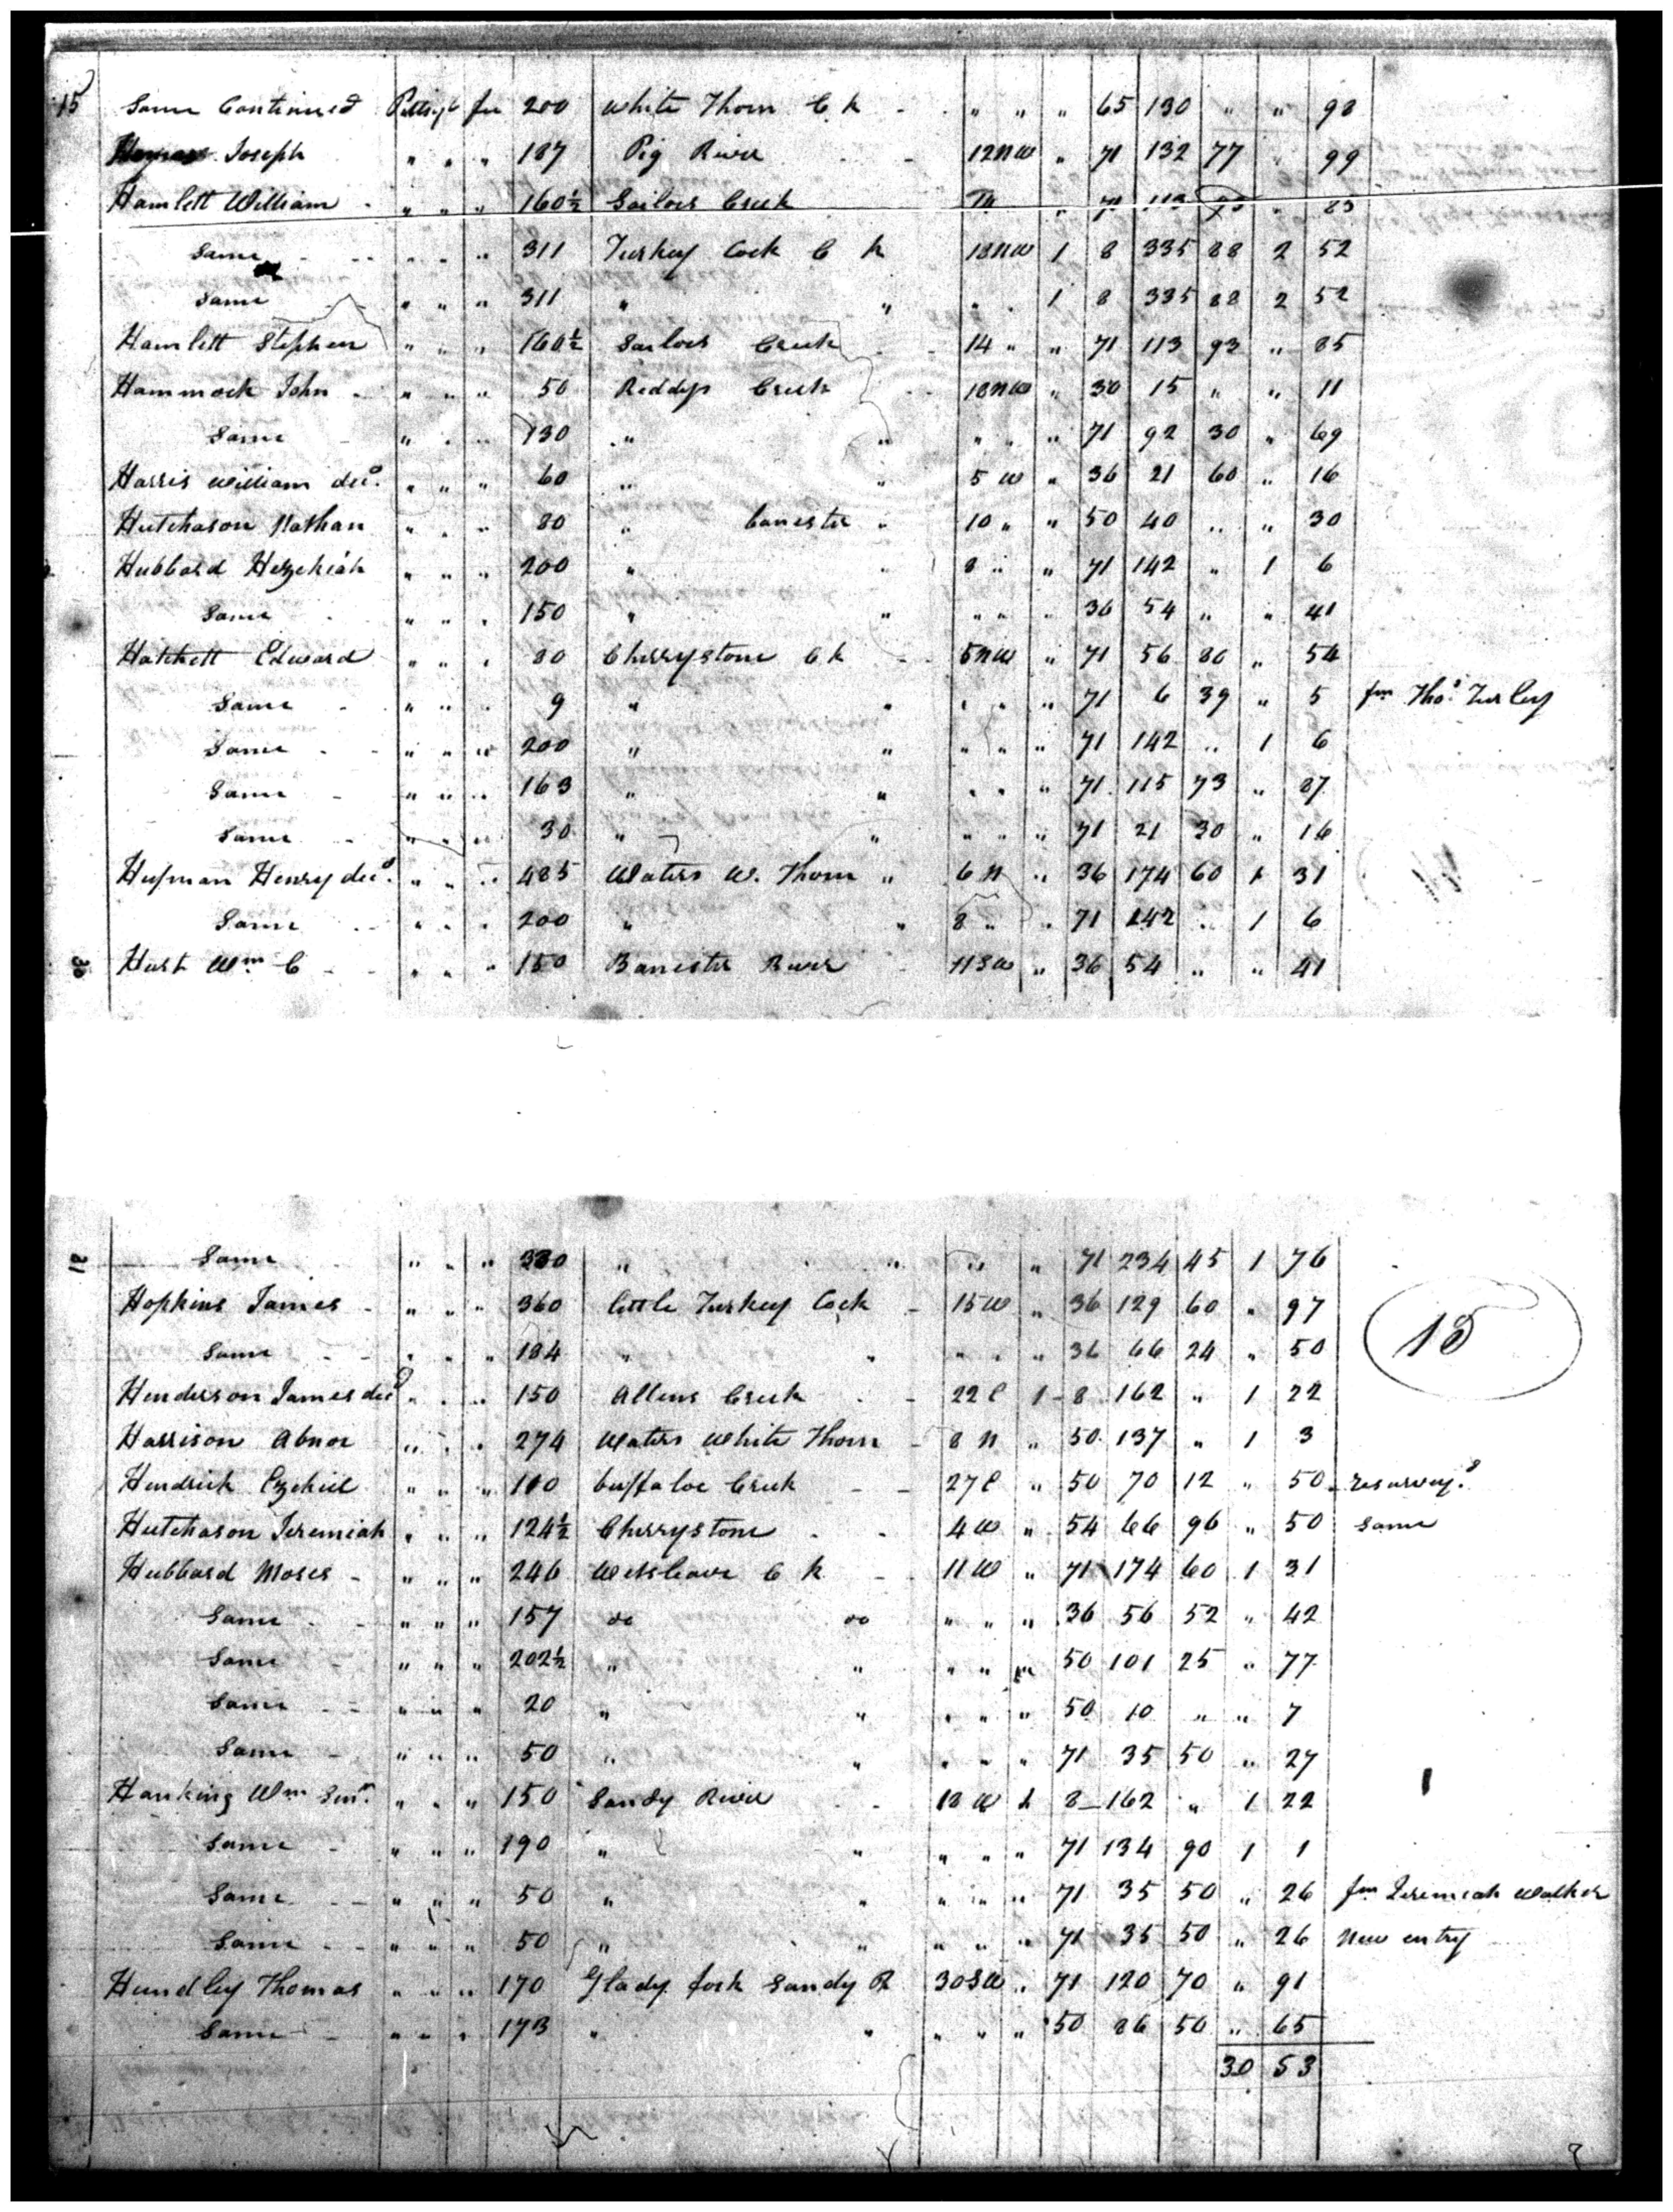 15 Same Continued Pittsyl fee 200 White Thorn C k " " " 65 130 " " 98
Joseph " " " 187 Pig River 12NW " 71 132 77 " 99
Hamlett William " " " 160½ Sailors Creek 14 " 71 113 93 " 85
Same " " " 311 Turkey Cock C k 18NW 1 8 335 88 2 52
Same " " " 311 " " " " 1 8 335 88 2 52
Hamlett Stephen " " " 160½ Sailors Creek 14 " " 71 113 93 " 85
Hammock John " " " 50 Reddys Creek 18NW " 30 15 " " 11
Same " " " 130 " " " " " 71 92 30 " 69
Harris William decd. " " " 60 " " 5 W " 36 21 60 " 16
Hutchason Nathan " " " 80 " banester " 10 " " 50 40 " " 30
Hubbard Hezekiah " " " 200 " " 8 " " 71 142 " 1 6
Same " " " 150 " " " " " 36 54 " " 41
Hatchett Edward " " " 80 Cherrystone C k 5NW " 71 56 80 " 54
Same " " " 9 " " " " " 71 6 39 " 5 fm Thos. Turley
Same " " " 200 " " " " " 71 142 " 1 6
Same " " " 163 " " " " " 71 115 73 " 87
Same " " " 30 " " " " " 71 21 30 " 16
Hufman Henry decd. " " " 485 Waters W. Thorn " 6 N " 36 174 60 1 31
Same " " " 200 " " 8 " " 71 142 " 1 6
30 Hurt Wm C " " " 150 Banester River 11SW " 36 54 " " 41
31 Same " " " 330 " " " " 71 234 45 1 76
Hopkins James " " " 360 little Turkey Cock 15W " 36 129 60 " 97
Same " " " 184 " " " " " 36 66 24 " 50
15
Henderson James decd " " " 150 Allens Creek 22 E 1 8 162 " 1 22
Harrison Abnor " " " 274 Waters White Thorn 8 N " 50 137 " 1 3
Hendrick Ezekiel " " " 140 buffaloe Creek 27 E " 50 70 12 " 50 resurveyd.
Hutchason Jeremiah " " " 124½ Cherrystone 4W " 54 66 96 " 50 Same
Hubbard Moses " " " 246 Wetsleave C k 11W " 71 174 60 1 31
Same " " " 157 do do " " " 36 56 52 " 42
Same " " " 202½ " " " " " 50 101 25 " 77
Same " " " 20 " " " " " 50 10 " " 7
Same " " " 50 " " " " " 71 35 50 " 27
Hanking Wm Senr. " " " 150 Sandy River 18 W 1 8 162 " 1 22
Same " " " 190 " " " " " 71 134 90 1 1
Same " " " 50 " " " " " 71 35 50 " 26 fm Jeremiah Walker
Same " " " 50 " " " " " 71 35 50 " 26 New entry
Hundley Thomas " " " 170 Glady fork Sandy R 30SW " 71 120 70 " 91
Same " " " 173 " " " " " 50 86 50 " 65
30 53